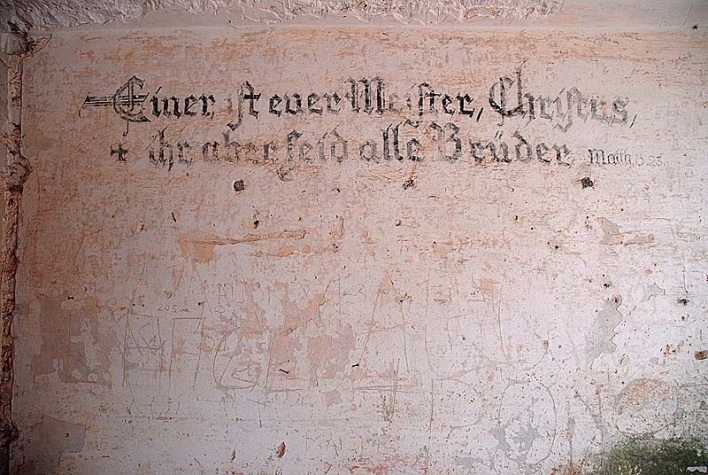 Einer ist euer Meister, Christus,
+ ihr aber seid alle Brüder